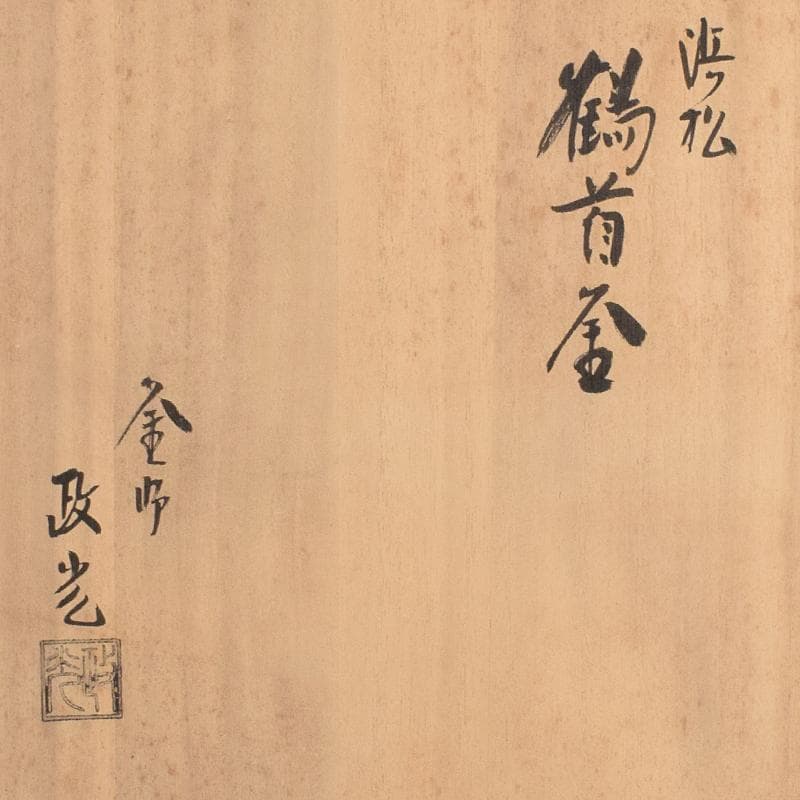 浜松
鶴首釜
釜師
政光